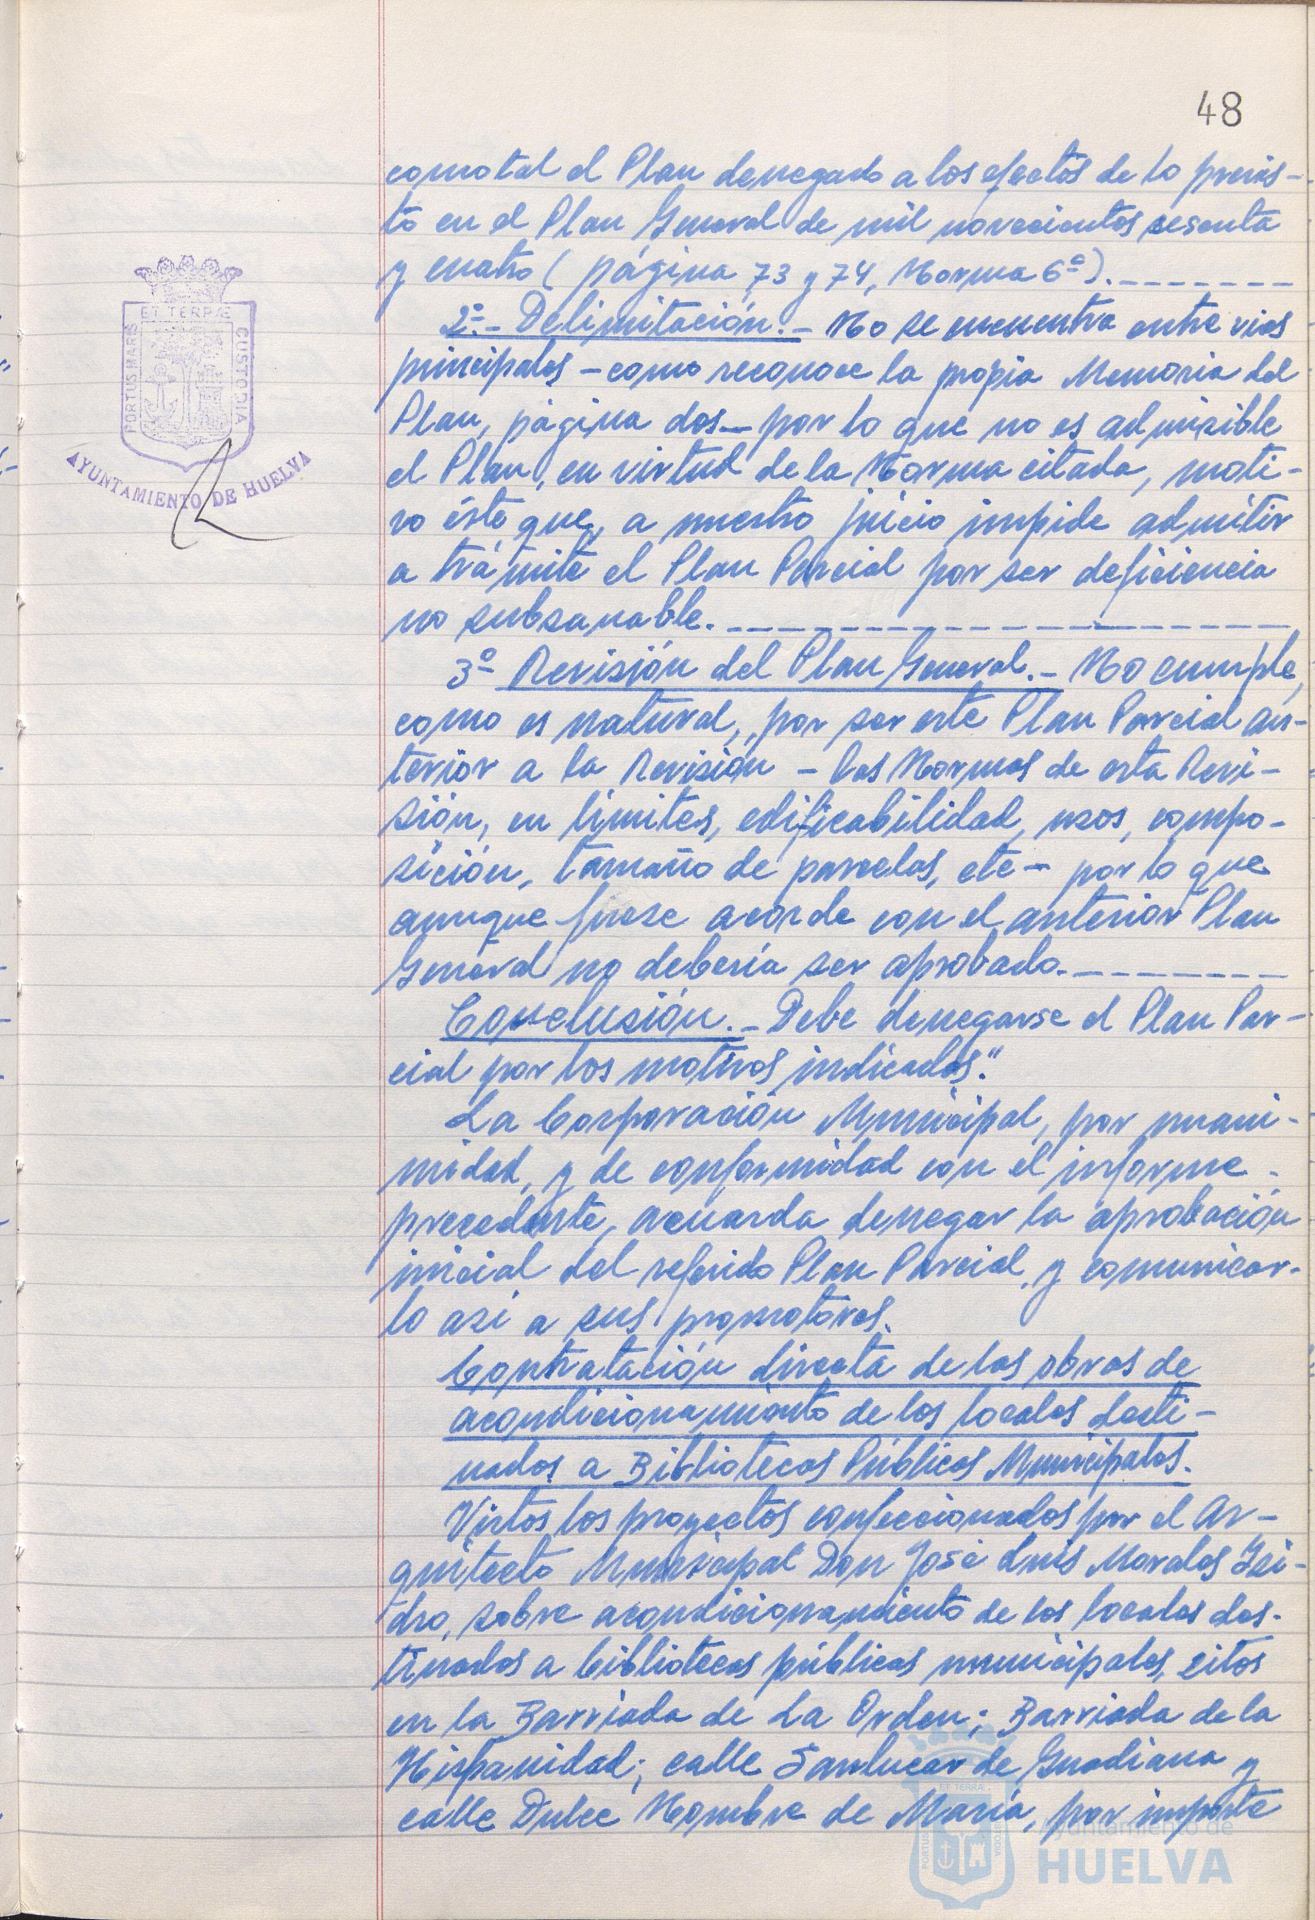 48
como tal el Plan denegado a los efectos de lo previs-
to en el Plan General de mil novecientos sesenta
y cuatro (página 73 y 74, Norma 6ª).
2º.- Delimitación.- No se encuentra entre vías
principales - como reconoce la propia Memoria del
Plan, página dos - por lo que no es admisible
el Plan, en virtud de la Norma citada, moti-
vo éste que, a nuestro juicio impide admitir
a trámite el Plan Parcial por ser deficiencia
no subsanable.
3º Revisión del Plan General.- No cumple,
como es natural, por ser este Plan Parcial an-
terior a la Revisión - las Normas de esta Revi-
sión, en límites, edificabilidad, usos, compo-
sición, tamaño de parcelas, etc - por lo que
aunque fuese acorde con el anterior Plan
General no debería ser aprobado.
Conclusión.- Debe denegarse el Plan Par-
cial por los motivos indicados."
La Corporación Municipal, por unani-
midad, y de conformidad con el informe
precedente, acuerda denegar la aprobación
inicial del referido Plan Parcial y comunicar-
lo así a sus promotores.
Contratación directa de las obras de
acondicionamiento de los locales desti-
nados a Bibliotecas Públicas Municipales.
Vistos los proyectos confeccionados por el Ar-
quitecto Municipal Don José Luis Morales Isi-
dro, sobre acondicionamiento de los locales des-
tinados a bibliotecas públicas municipales, sitos
en la Barriada de La Orden; Barriada de la
Hispanidad; calle Sanlucar de Guadiana y
calle Dulce Nombre de María, por importe
PORTUS MARIS
ET TERRÆ
CUSTODIA
AYUNTAMIENTO DE HUELVA
Ayuntamiento de
HUELVA